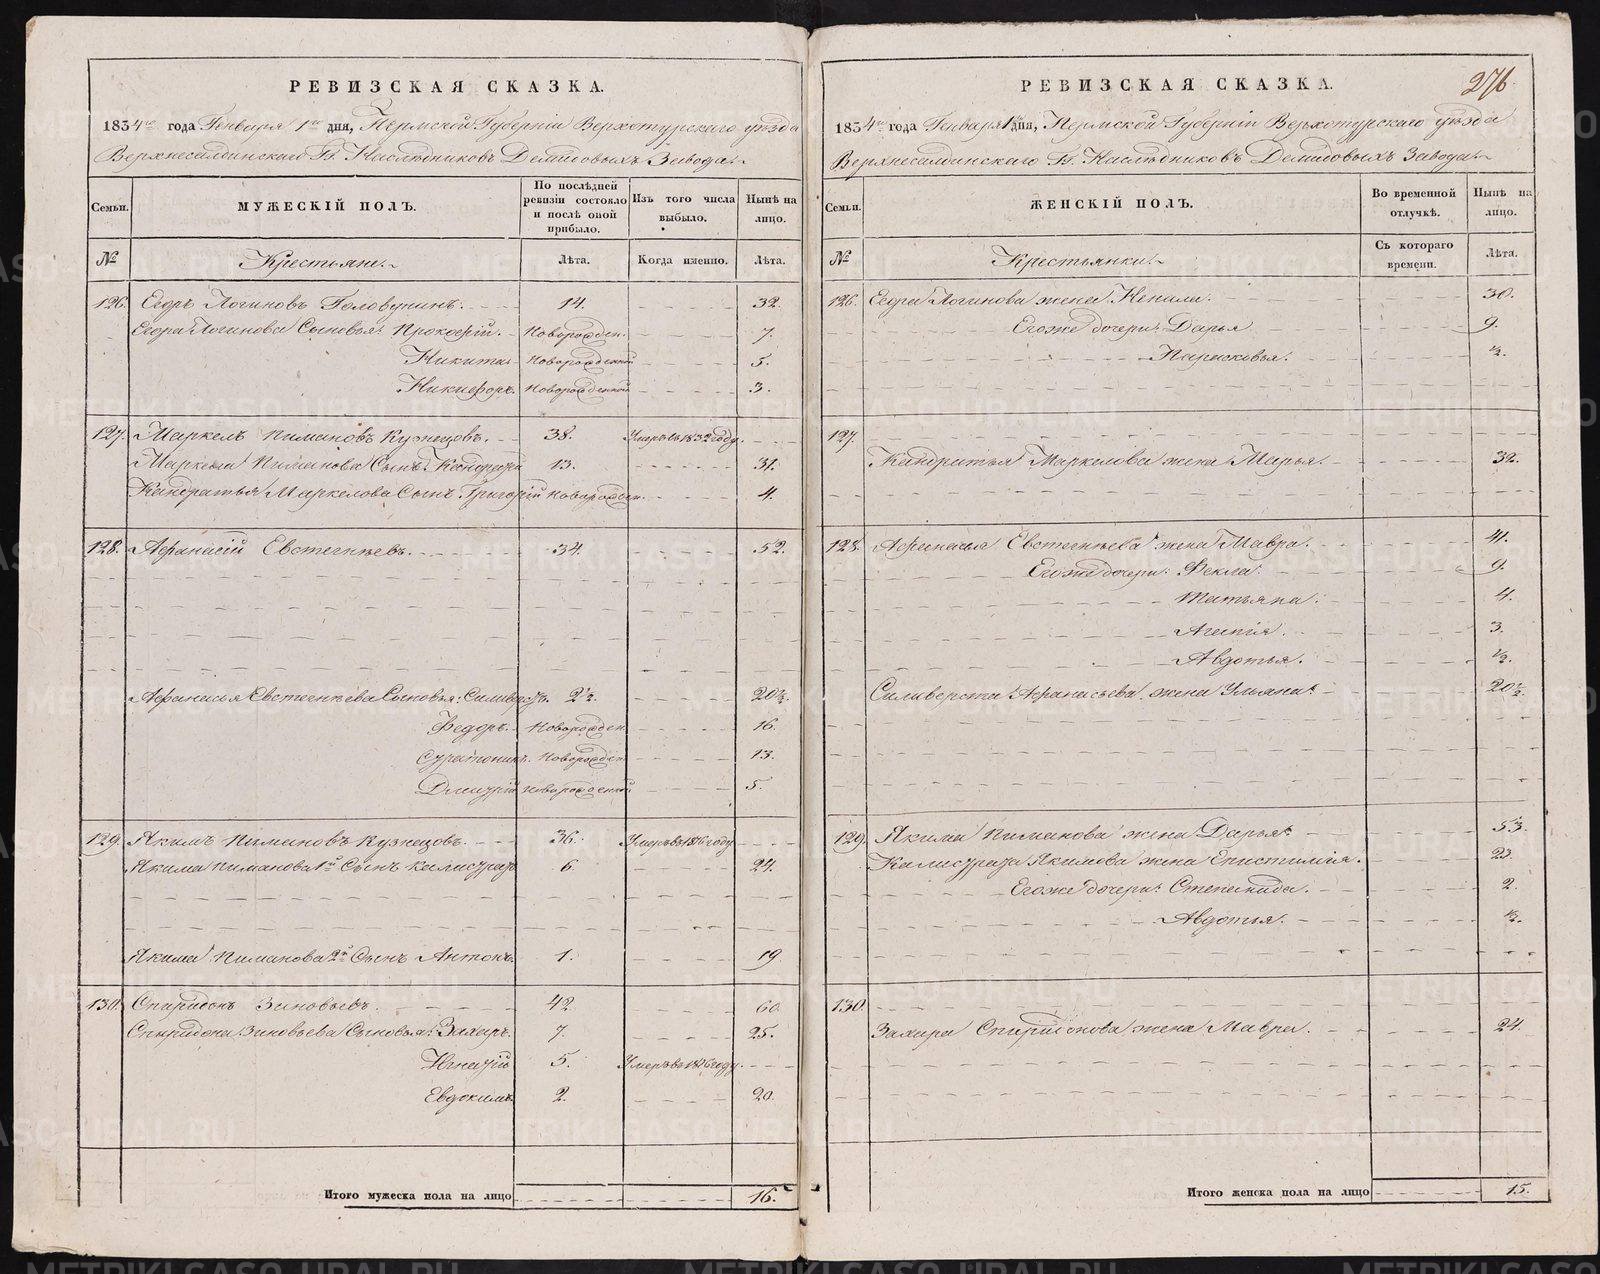 РЕВИЗСКАЯ СКАЗКА.
1834го года Генваря 1го дня, Пермской Губерніи Верхотурскаго уѣзда
Верхнесалдинскаго Гг. Наслѣдниковъ Демидовыхъ Завода.
Семьи. МУЖЕСКІЙ ПОЛЪ. По послѣдней ревизіи состояло и послѣ оной прибыло. Изъ того числа выбыло. Нынѣ на лицо.
№ Крестьяне. Лѣта. Когда именно. Лѣта.
126. Егоръ Логиновъ Головунинъ. 14. 32.
Егора Логинова Сыновья: Прокофій. Новорожден. 7.
Никита. Новорожденной 5.
Никифоръ. Новорожденной 3.
127. Маркелъ Пимановъ Кузнецовъ. 38. Умеръ в 1832 году.
Маркела Пиманова Сынъ Кондратій 13. 31.
Кандратья Маркелова Сынъ Григорій Новорожден. 4.
128. Афанасій Евстегнѣевъ. 34. 52.
Афанасья Евстегнѣева Сыновья: Силиверстъ. 2½. 20½.
Федоръ. Новорожден. 16.
Новорожден. 13.
Дмитрій Новорожденной 5.
129. Якимъ Пимановъ Кузнецовъ. 36. Умеръ в 1816 году
Якима Пиманова 1й Сынъ Калистратъ 6. 24.
Якима Пиманова 2й Сынъ Антонъ. 1. 19
130. Спиридонъ Зиновьевъ. 42. 60.
Спиридона Зиновьева Сыновья: Захаръ. 7. 25.
Игнатій 5. Умеръ в 1816 году.
Евдокимъ. 2. 20.
Итого мужеска пола на лицо 16.
276
РЕВИЗСКАЯ СКАЗКА.
1834го года Генваря 1го дня, Пермской Губерніи Верхотурскаго уѣзда
Верхнесалдинскаго Гг. Наслѣдниковъ Демидовыхъ Завода.
Семьи. ЖЕНСКІЙ ПОЛЪ. Во временной отлучкѣ. Нынѣ на лицо.
№ Крестьянки. Съ котораго времени. Лѣта.
126. Егора Логинова жена Ненила. 30.
Егоже дочери: Дарья 9.
Парасковья. ½.
127.
Кандратья Маркелова жена Марья. 32.
128. Афанасья Евстегнѣева жена Мавра. 41.
Егоже дочери: Фекла. 9.
Татьяна. 4.
Агапія. 3.
Авдотья. ½.
Силиверста Афанасьева жена Ульяна. 20½.
129. Якима Пиманова жена Дарья. 53.
Калистрата Якимова жена Епистимія. 23.
Егоже дочери: Степанида. 2.
Авдотья. ½.
130.
Захара Спиридонова жена Мавра. 24.
Итого женска пола на лицо 15.
METRIKI.GASO-URAL.RU